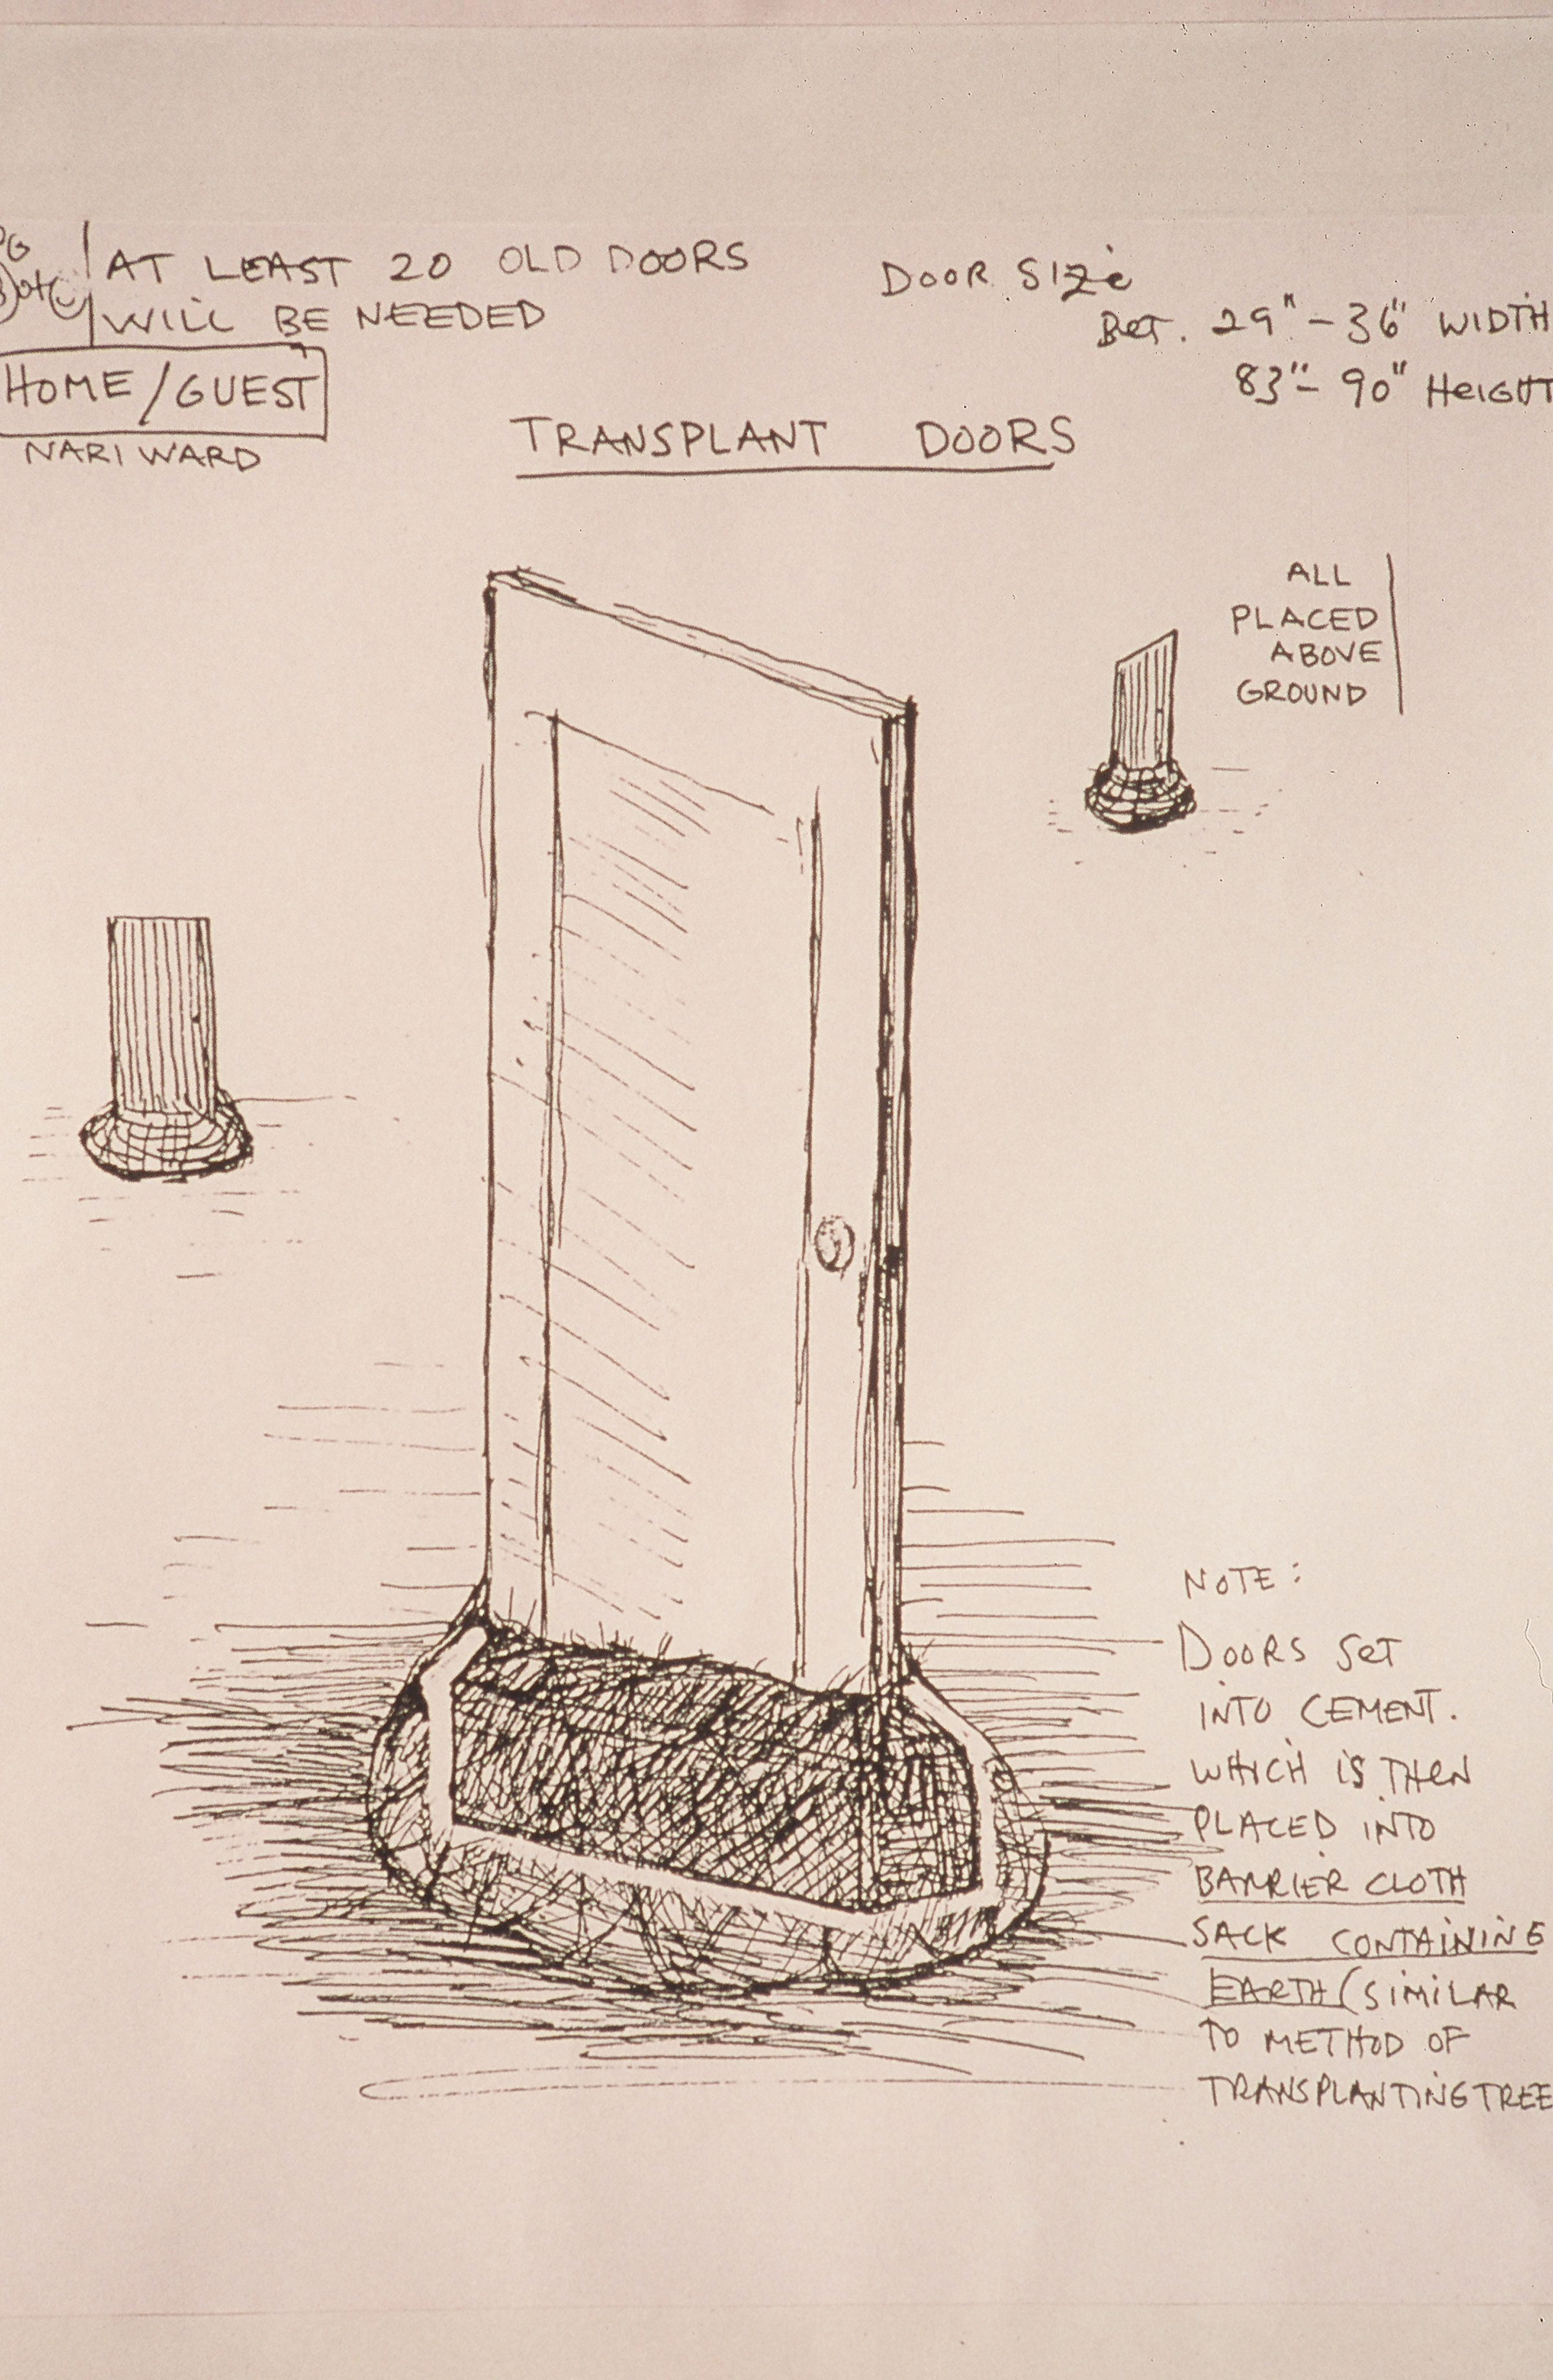 AT LEAST 20 OLD DOORS
WILL BE NEEDED
HOME/GUEST
NARI WARD
DOOR SIZE
BET. 29" - 36" WIDTH
83" - 90" HEIGHT
TRANSPLANT DOORS
ALL
PLACED
ABOVE
GROUND
NOTE:
DOORS SET
INTO CEMENT.
WHICH IS THEN
PLACED INTO
BARRIER CLOTH
SACK CONTAINING
EARTH (SIMILAR
TO METHOD OF
TRANSPLANTING TREE